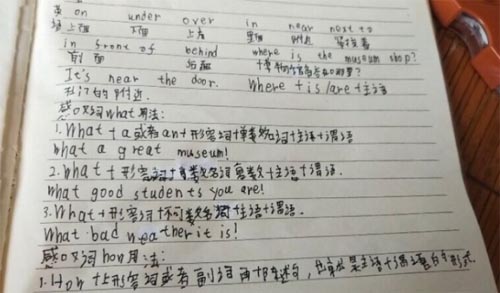 on under over in near next to
上面 下面 上方 里面 附近 紧挨着
in front of behind where is the museum shop?
前面 后面 博物馆商店在哪里?
It's near the door. Where + is/are + 主语
在门的附近.
感叹词what用法:
1. What + a或者an + 形容词 + 单数名词 + 主语 + 谓语
What a great museum!
2. What + 形容词 + 名词复数 + 主语 + 谓语.
What good students you are!
3. What + 形容词 + 不可数名词 + 主语 + 谓语.
What bad weather it is!
感叹词how用法:
1. How + 上形容词或者副词